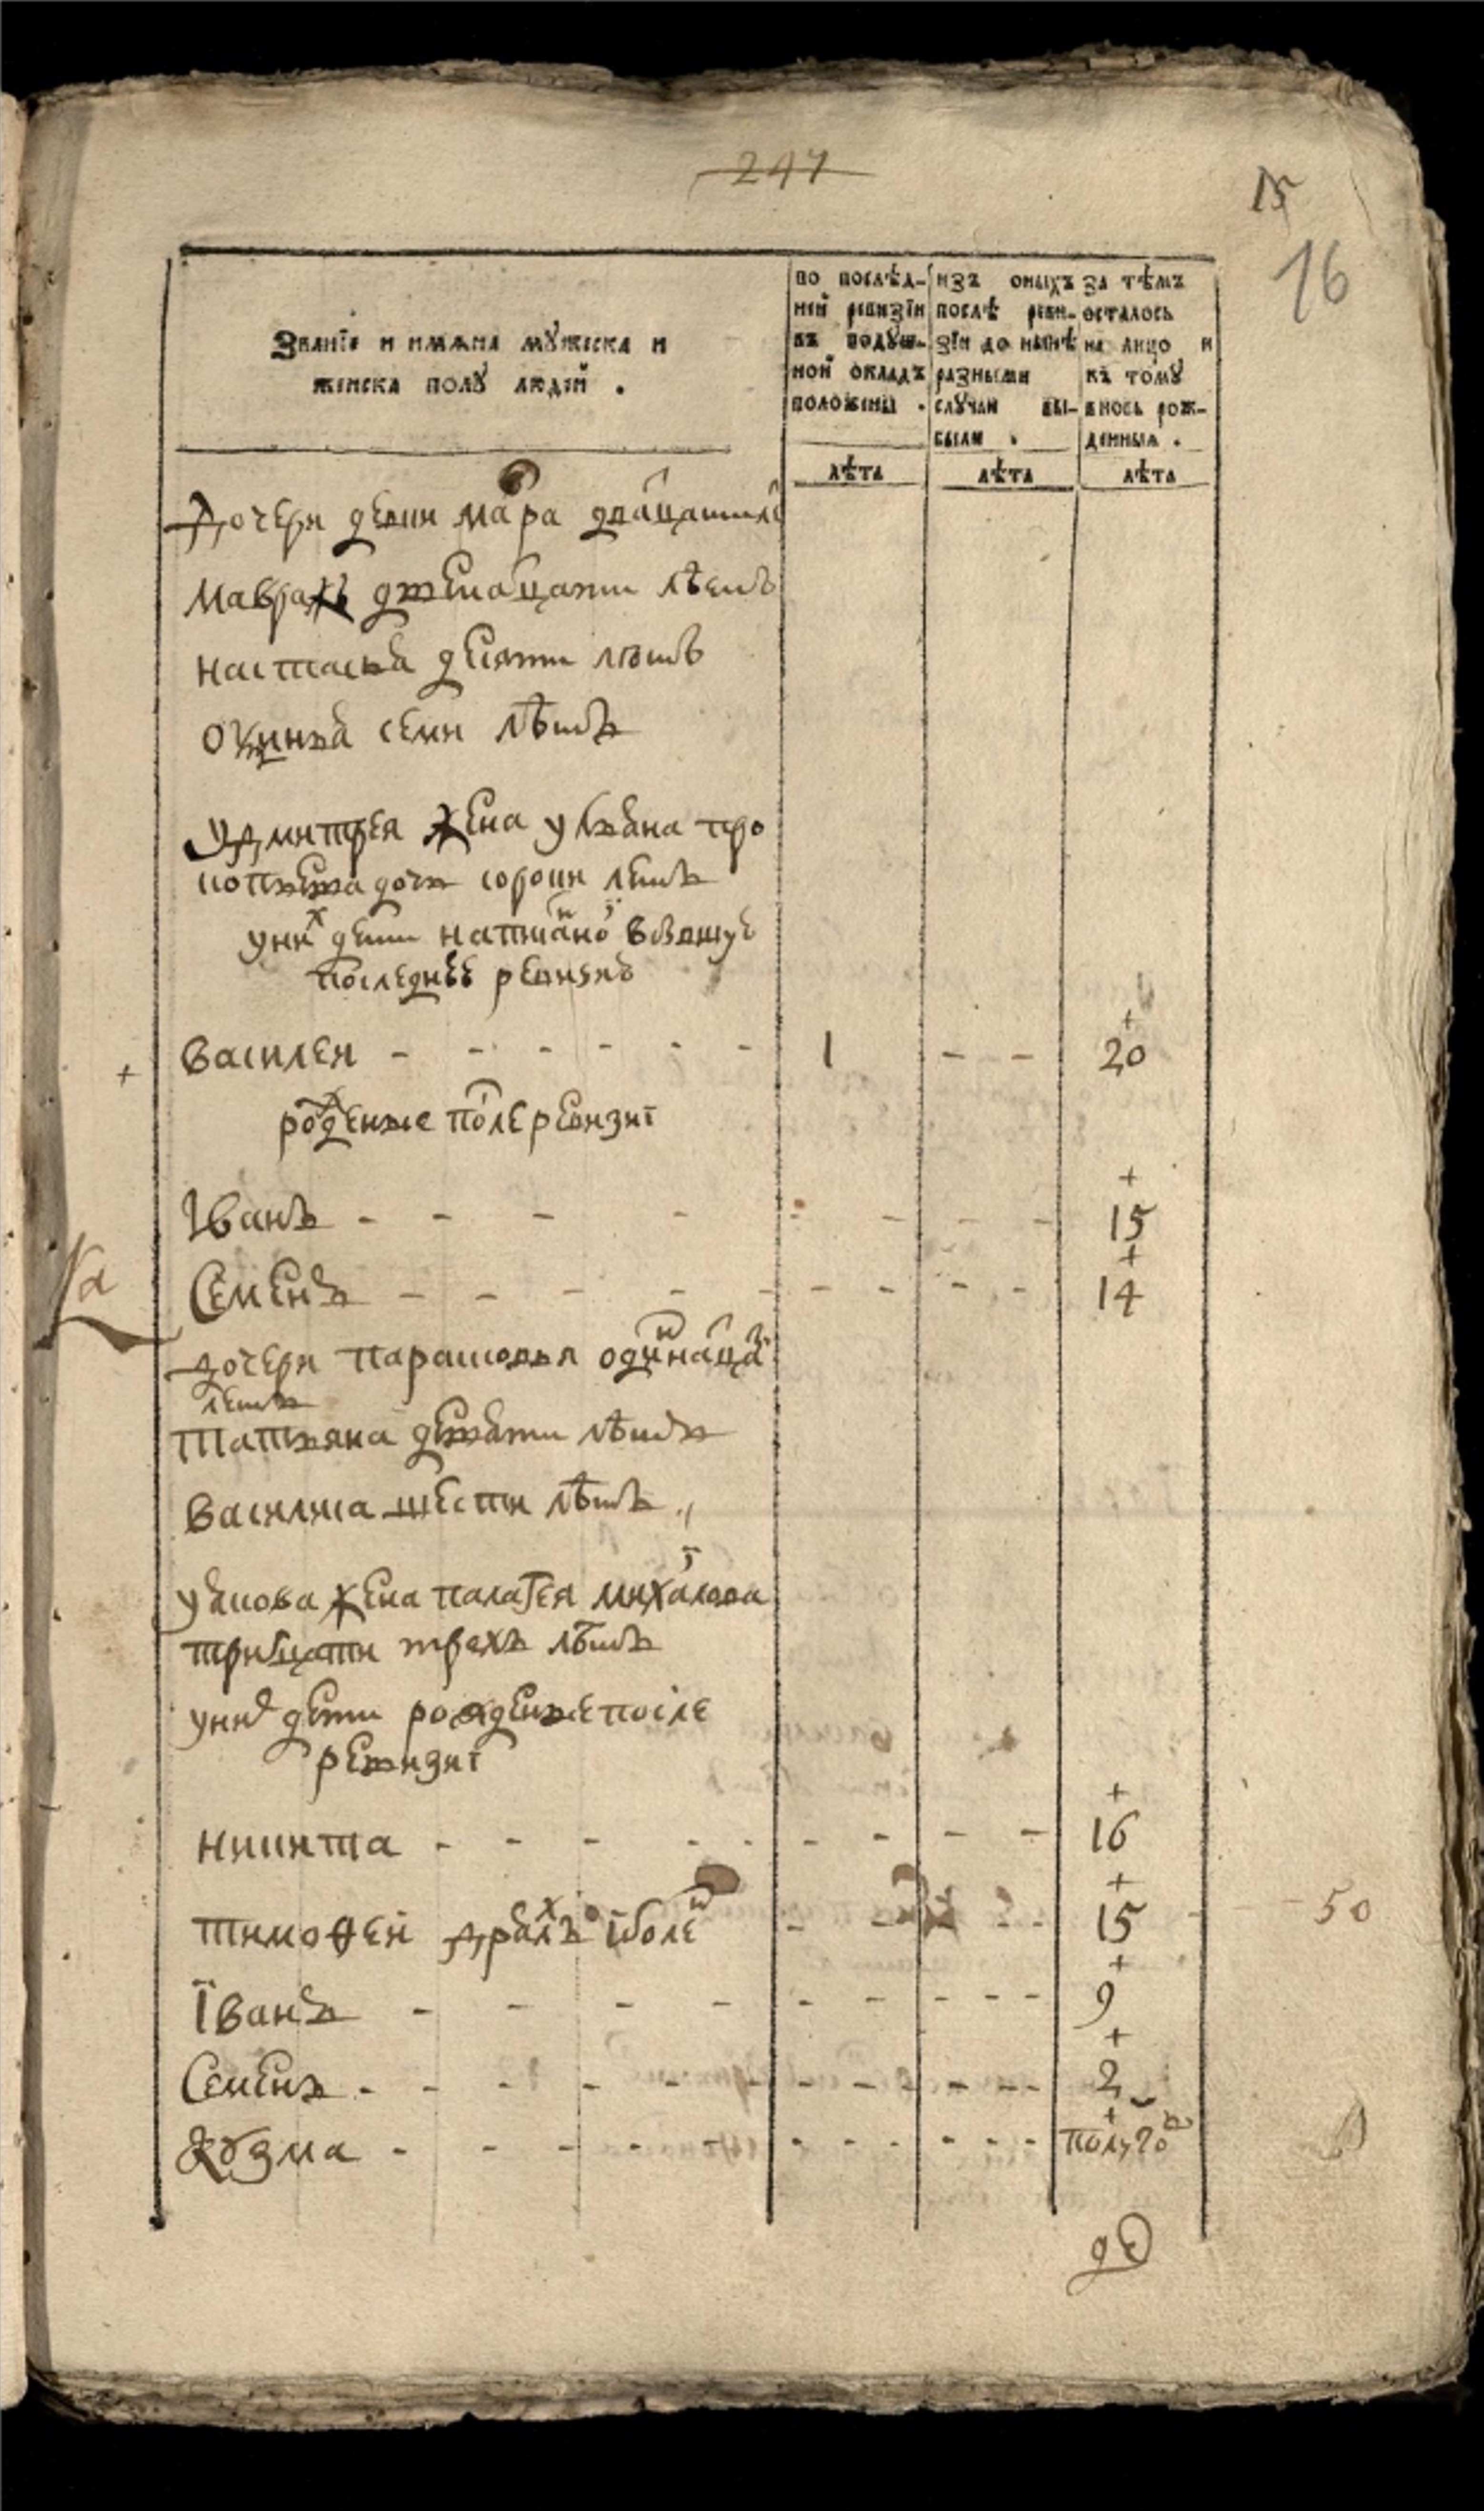 247
15
16
Званїе и имѧна мꙋжеска и
женска полꙋ людей .
по послѣд-
ней ревизїи
въ подꙋш-
ной окладъ
положены .
изъ оныхъ
послѣ реви-
зїи до нынѣ
разными
слꙋчаи вы-
были .
за тѣмъ
осталось
на лицо и
къ томꙋ
вновь рож-
денныя .
лѣта
лѣта
лѣта
дочери девки мара дватцати ле
мавра двенатцати лѣтъ
настасья десяти лѣтъ
окулина семи лѣтъ
у дмитрея жена ульяна про
кофьева дочь сороки летъ
у них дети написаной в бывшуе
последнее ревизие
василеи - - - - - - 1 - - 20
рожденые после ревизиї
Іванъ - - - - - - - - 15
Семенъ - - - - - - - - - 14
дочери парасковья одиннатца
летъ
татьяна девяти лѣтъ
василиса шести лѣтъ
у якова жена палагея михайлова
тритцати трехъ лѣтъ
у них дети рожденые после
ревизиї
никита - - - - - - - - - 16
тимофей дряхлъ ї болен - - - - 15 - 50
Їванъ - - - - - - - - - 9
Семенъ - - - - - - - - - - 2
Козма - - - - - - - - - - полуго